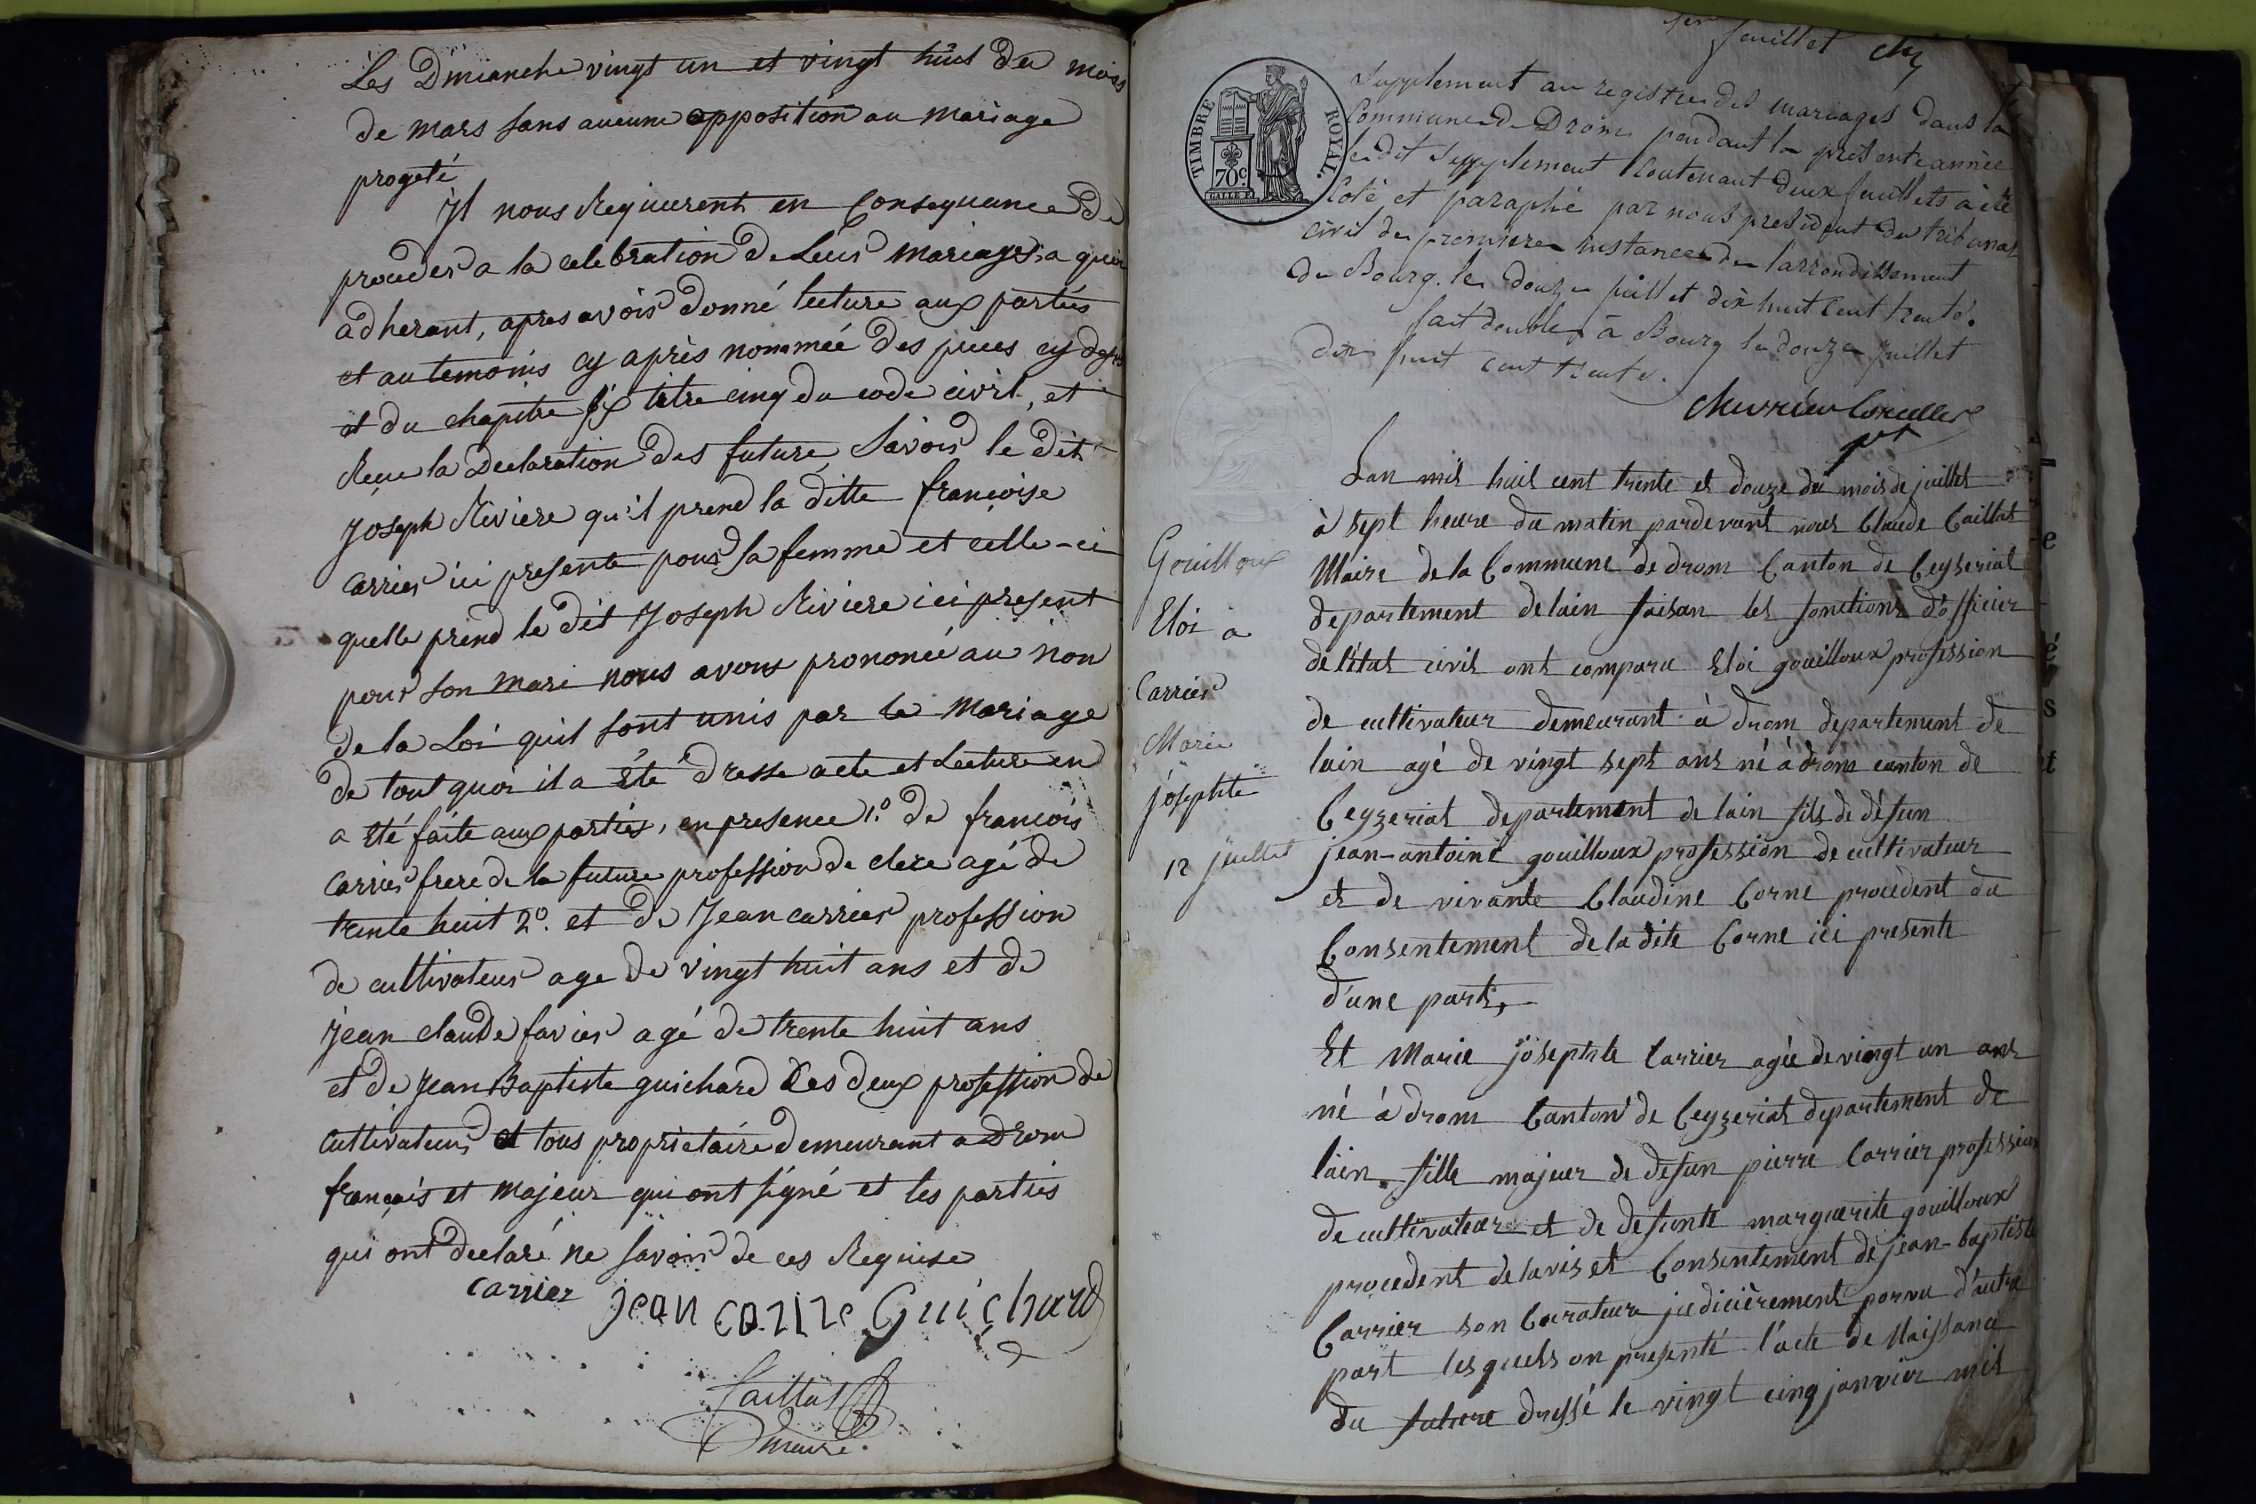 Les Dimanche vingt un et vingt huit du mois
de mars sans aucune opposition au mariage
progeté
Il nous Requierent en Consequance de
proceder a la celebration de Leur mariage, a quoi
adherant, apres avoir donné lecture aux parties
et au temoins cy après nommée des pieces cy dessus
et du chapitre six titre cinq du code civil, et
Recu la Declaration des future savoir le dit
Joseph Riviere qu'il prend la ditte françoise
carrier ici presente pour sa femme et celle-ci
quelle prend le dit Joseph Riviere ici present
pour son mari nous avons prononcé au non
de la Loi quil sont unis par le mariage
de tout quoi il a été dresse acte et Lecture en
a été faite aux parties, en presence 1.º de francois
carrier frere de la future profession de clerc agé de
trente huit 2.º et de Jean carrier profession
de cultivateur age de vingt huit ans et de
jean claude favier agé de trente huit ans
et de Jean Baptiste guichard Les deux profession de
cultivateur et tous proprietaire demeurant a Drom
français et majeur qui ont signé et les parties
qui ont declaré ne savoir de ces Requise
carrier jean carrie Guichard
Caillat
maire
1er feuillet
TIMBRE ROYAL.
70c.
Supplement au registre des mariages dans la
Commune de Drom pendant la presente année
le dit supplement contenant deux feuillets a été
Coté et paraphé par nous president du tribunal
civil de premiere instance de larrondissement
de Bourg. le douze juillet dix huit cent trente.
fait double à Bourg le douze juillet
dix huit cent trente.
pt
Gouilloux
Eloi a
Carrier
Marie
josephte
12 juillet
Lan mil huit cent trente et douze du mois de juillet
à sept heure du matin pardevant nous Claude Caillat
Maire de la Commune de drom Canton de Ceyzeriat
departement de lain faisan les fonctions d'officier
de l'état civil ont comparu Eloi gouilloux profession
de cultivateur demeurant à drom departement de
lain agé de vingt sept ans né à drom canton de
Ceyzeriat departement de lain fils de défun
jean-antoine gouilloux profession de cultivateur
et de vivante Claudine Corne procedent du
Consentement de la dite Corne ici presente
d'une part,
Et Marie josephte Carrier agée de vingt un ans
né à drom Canton de Ceyzeriat departement de
lain. fille majeur de defun pierre Carrier profession
de cultivateur et de defunte marguerite gouilloux
procedent de lavis et Consentement de jean-baptiste
Carrier son Curateur judicièrement porvu d'autre
part lesquels on presenté l'acte de Naissance
du future dressé le vingt cinq janvier mil